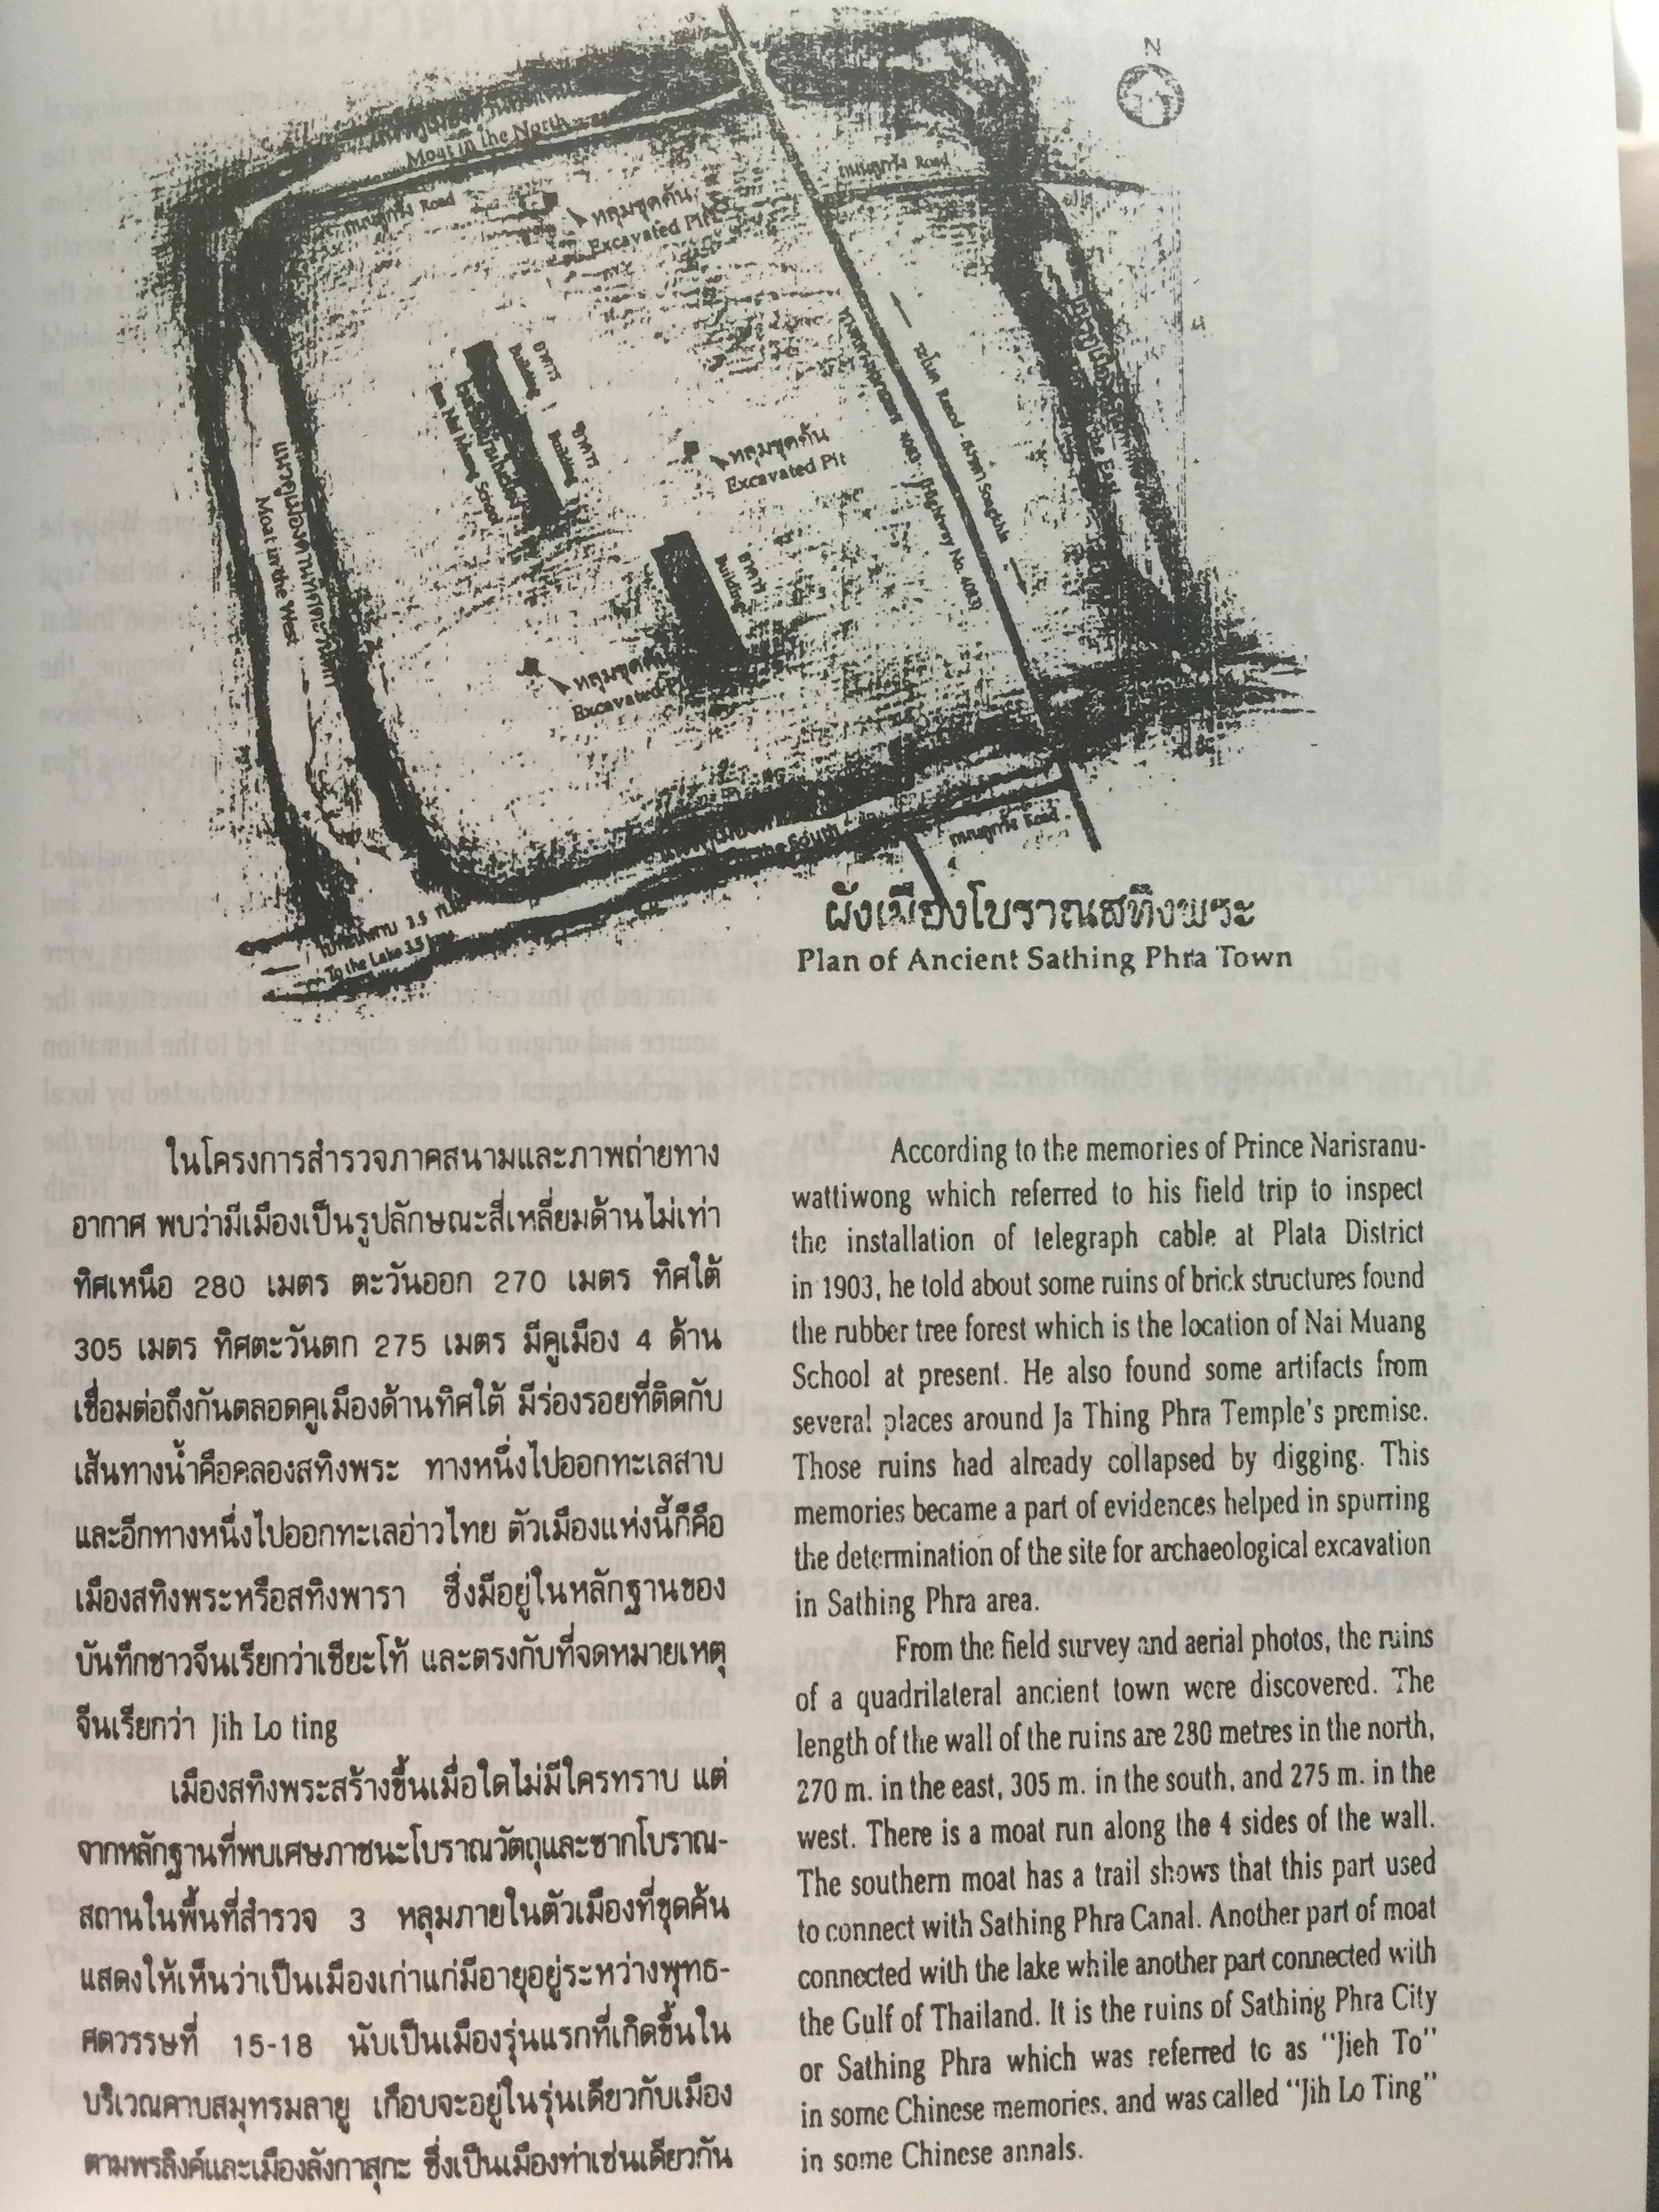 N
Moat in the North
ถนนลูกรัง Road
ถนนลูกรัง Road
หลุมขุดค้น
Excavated Pit
อาคาร
Building
อาคาร
Building
Ban Nai Muang School
หลุมขุดค้น
Excavated Pit
ระโนด Ranod - สงขลา Songkhla
(Hightway No. 4083)
the East
แนวคูเมืองด้านทิศตะวันตก
Moat in the West
อาคาร
Building
หลุมขุดค้น
Excavated Pit
the South
ถนนลูกรัง Road
ไปทะเลสาบ 3.5 กม.
To the Lake 3.5 km.
ผังเมืองโบราณสทิงพระ
Plan of Ancient Sathing Phra Town
ในโครงการสำรวจภาคสนามและภาพถ่ายทาง
อากาศ พบว่ามีเมืองเป็นรูปลักษณะสี่เหลี่ยมด้านไม่เท่า
ทิศเหนือ 280 เมตร ตะวันออก 270 เมตร ทิศใต้
305 เมตร ทิศตะวันตก 275 เมตร มีคูเมือง 4 ด้าน
เชื่อมต่อถึงกันตลอดคูเมืองด้านทิศใต้ มีร่องรอยที่ติดกับ
เส้นทางน้ำคือคลองสทิงพระ ทางหนึ่งไปออกทะเลสาบ
และอีกทางหนึ่งไปออกทะเลอ่าวไทย ตัวเมืองแห่งนี้ก็คือ
เมืองสทิงพระหรือสทิงพารา ซึ่งมีอยู่ในหลักฐานของ
บันทึกชาวจีนเรียกว่าเซียะโท้ และตรงกับที่จดหมายเหตุ
จีนเรียกว่า Jih Lo ting
เมืองสทิงพระสร้างขึ้นเมื่อใดไม่มีใครทราบ แต่
จากหลักฐานที่พบเศษภาชนะโบราณวัตถุและซากโบราณ-
สถานในพื้นที่สำรวจ 3 หลุมภายในตัวเมืองที่ขุดค้น
แสดงให้เห็นว่าเป็นเมืองเก่าแก่มีอายุอยู่ระหว่างพุทธ-
ศตวรรษที่ 15-18 นับเป็นเมืองรุ่นแรกที่เกิดขึ้นใน
บริเวณคาบสมุทรมลายู เกือบจะอยู่ในรุ่นเดียวกับเมือง
ตามพรลิงค์และเมืองลังกาสุกะ ซึ่งเป็นเมืองท่าเช่นเดียวกัน
According to the memories of Prince Narisranu-
wattiwong which referred to his field trip to inspect
the installation of telegraph cable at Plata District
in 1903, he told about some ruins of brick structures found
the rubber tree forest which is the location of Nai Muang
School at present. He also found some artifacts from
several places around Ja Thing Phra Temple's premise.
Those ruins had already collapsed by digging. This
memories became a part of evidences helped in spurring
the determination of the site for archaeological excavation
in Sathing Phra area.
From the field survey and aerial photos, the ruins
of a quadrilateral ancient town were discovered. The
length of the wall of the ruins are 280 metres in the north,
270 m. in the east, 305 m. in the south, and 275 m. in the
west. There is a moat run along the 4 sides of the wall.
The southern moat has a trail shows that this part used
to connect with Sathing Phra Canal. Another part of moat
connected with the lake while another part connected with
the Gulf of Thailand. It is the ruins of Sathing Phra City
or Sathing Phra which was referred to as "Jieh To"
in some Chinese memories, and was called "Jih Lo Ting"
in some Chinese annals.